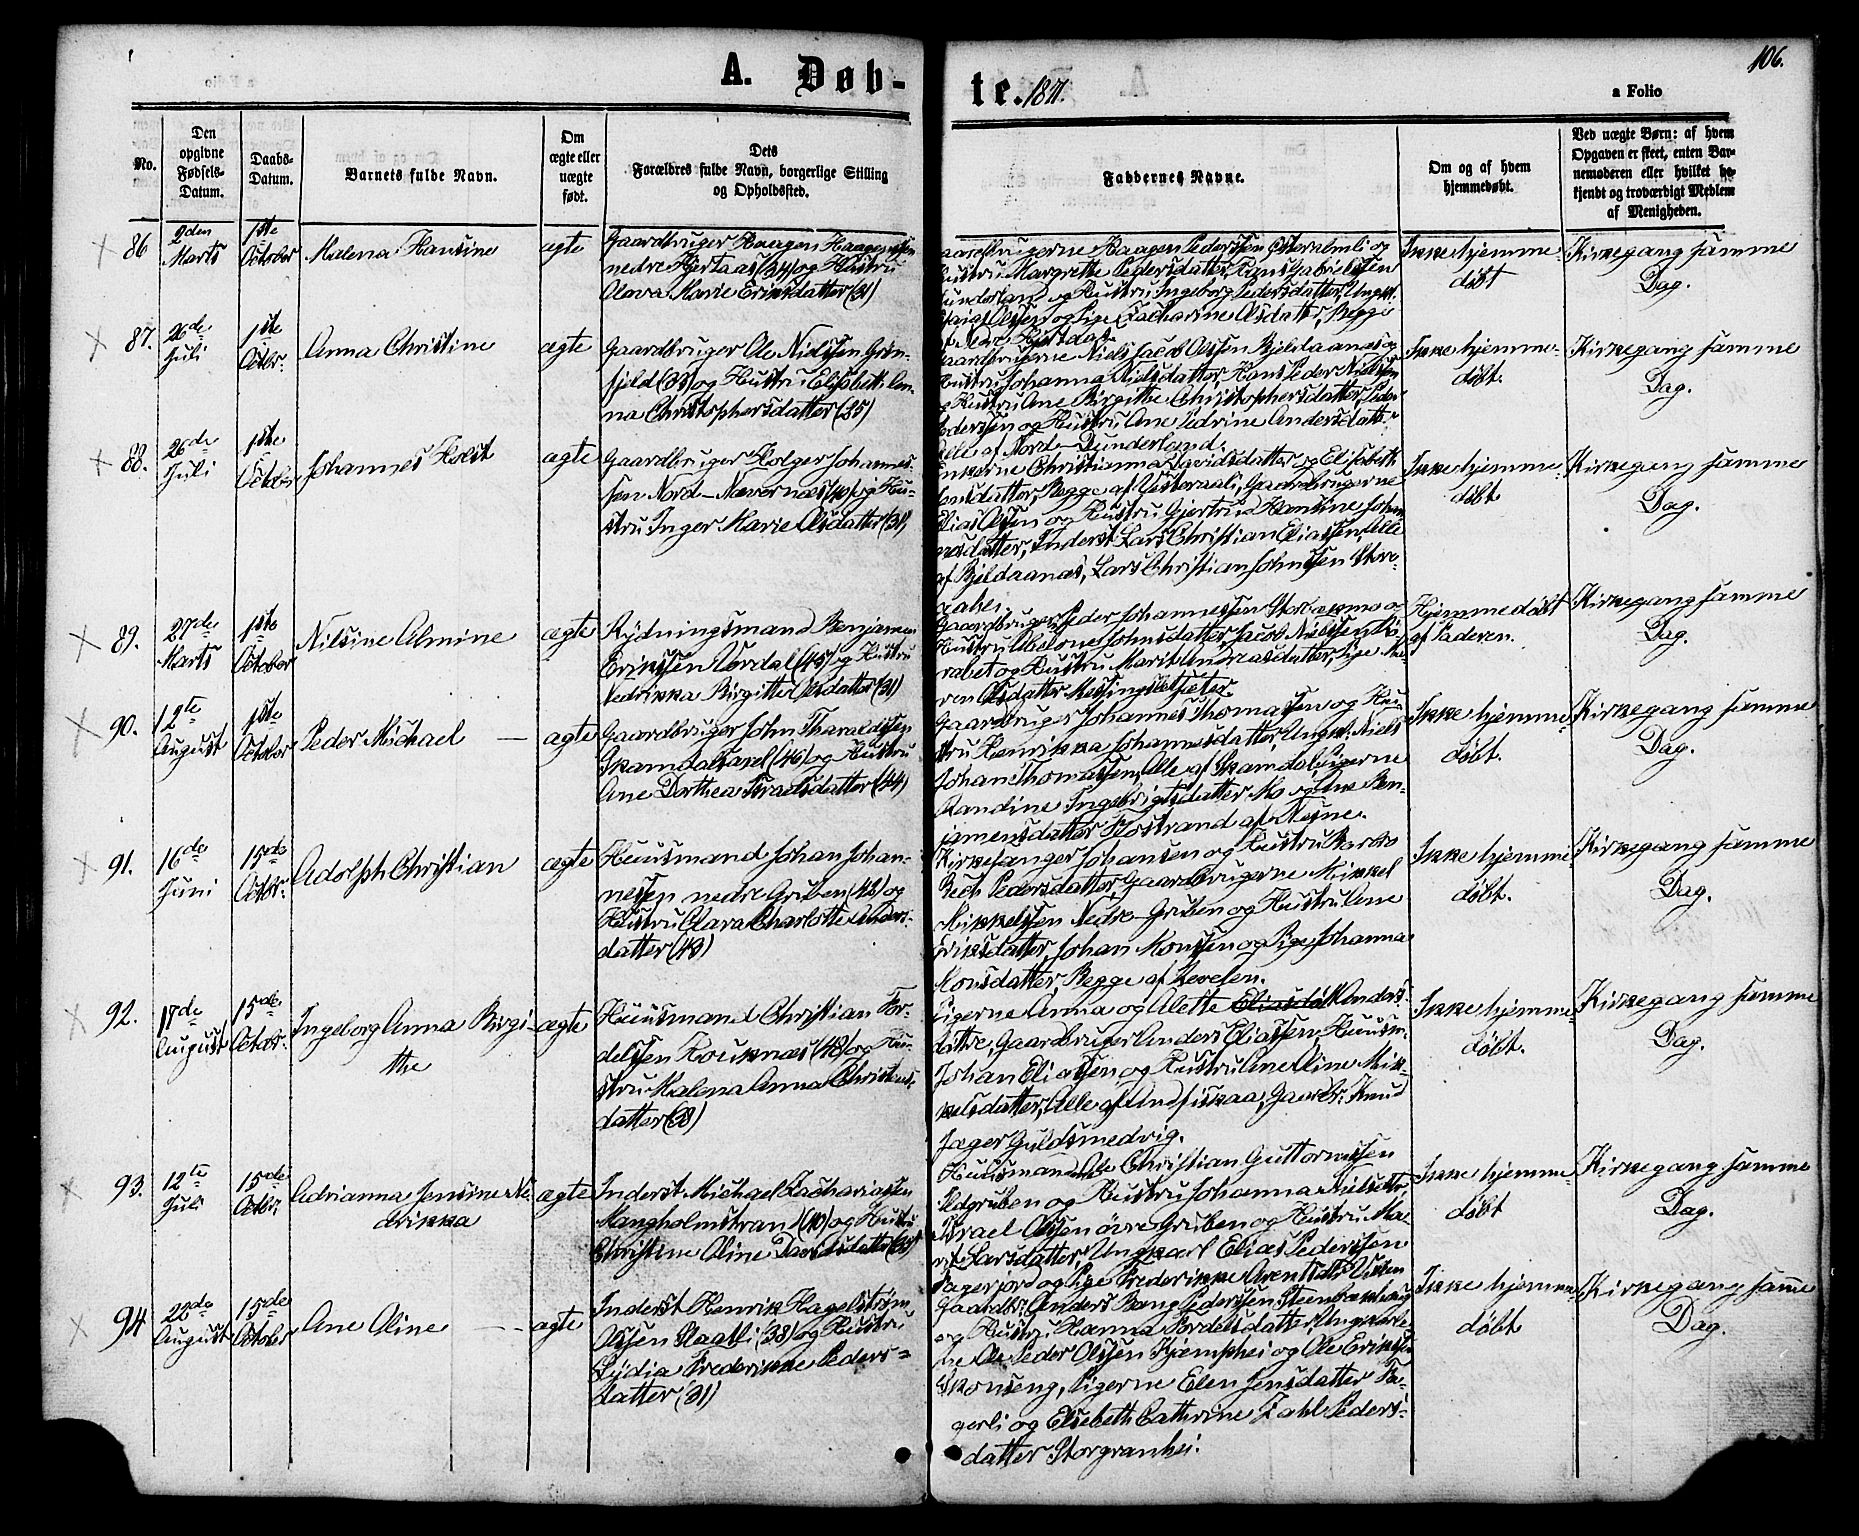 106.
A. Døb-
te. 1871.
a Folio
No.
Den
opgivne
Fødsels-
Datum.
Daabs-
Datum.
Barnets fulde Navn.
Om
ægte eller
uægte
født.
Dets
Forældres fulde Navn, borgerlige Stilling
og Opholdssted.
Faddernes Navne.
Om og af hvem
hjemmedøbt.
Ved uægte Børn: af hvem
Opgaven er skeet, enten Bar-
nemoderen eller hvilket be-
kjendt og troværdigt Medlem
af Menigheden.
86
2den
Marts
1ste
October
Malena Hansine
ægte
Gaardbruger Haagen Haagenssen
nedre Hjertaas (34) og Hustru
Olava Marie Eriksdatter (31)
Gaardbrugerne Haagen Pederssen
Hustru Margrethe Pedersdatter, Hans Gabrielssen
og Hustru Ingeborg Pedersdatter, Ungk.
Olssen og Pige Zacharine Olsdatter, Begge
Ikke hjemme-
døbt
Kirkegang samme
Dag.
87.
26de
Juli
1ste
Octbr.
Anna Christine
ægte
Gaardbruger Ole Nielssen Grøn-
fjeld (38) og Hustru Elisbeth An-
na Christophersdatter (35)
Gaardbrugerne Niels Jacob Olssen Bjeldaanæs og
Hustru Johanna Nielsdatter, Hans Peder Nielssen
og Hustru Ane Birgitte Christophersdatter, Peder
Pederssen og Hustru Ane Pedrine Andersdatter
alle af Nord-Dunderland.
Ikke hjemme-
døbt.
Kirkegang samme
Dag.
88.
26de
Juli
1ste
October
Johannes Holst
ægte
Gaardbruger Holger Johannes-
sen Nord-Nævernæs (40) og Hu-
stru Inger Marie Olsdatter (31)
Enkerne Christianna Davidsdatter og Elisabeth
Begge af Ytteraali, Gaardbrugerne
Elias Olssen og Hustru Gjertrud Hansine Johan-
nesdatter, Inderst Lars Christian Eliassen, Alle
af Bjeldaanæs, Lars Christian Johnssen Stor-
Ikke hjemme-
døbt
Kirkegang samme
Dag.
89.
27de
Marts
1ste
October
Nilsine Almine
ægte
Rydningsmand Benjamin
Erikssen Virdal (45) og Hustru
Fedrikka Birgitte Olsdatter (31)
Gaardbruger Peder Johannessen
Hustru Abelone Johnsdatter, Jacob Nielssen
og Hustru Marit Andreasdatter, Pige Ma-
ren Olsdatter Messingsletsæter.
Hjemmedøbt
af Faderen.
Kirkegang samme
Dag.
90.
12te
August
1ste
October
Peder Michael
ægte
Gaardbruger John Tharaldsen
Skamdalaxel (46) og Hustru
Ane Dorthea Israelsdatter (44)
Gaardbruger Johannes Thomassen og Hu-
stru Henrikka Johannesdatter, Ungk. Niels
Johan Thomassen, Alle af Skamdal, Pigerne
Randine Ingebrigtsdatter Mo og Ane Ben-
jamensdatter Flostrand af Næsne.
Ikke hjemme-
døbt.
Kirkegang samme
Dag.
91.
16de
Juni
15de
Octbr.
Adolph Christian
ægte
Huusmand Johan Johan-
nessen nedre Gruben (42) og
Hustru Clara Charlotte Anders-
datter (43)
Kirkesanger Johansen og Hustru Barbro
Bech Pedersdatter, Gaardbrugerne Mikkel
Mikkelssen Nedre Gruben og Hustru Ane
Eriksdatter, Johan Monssen og Pige Johanna
Monsdatter, Begge af Revelen.
Ikke hjemme-
døbt.
Kirkegang samme
Dag.
92.
17de
August
15de
Octobr.
Ingeborg Anna Birgi-
the
ægte
Huusmand Christian For-
delssen Houknæs (48) og Hu-
stru Malena Anna Christens-
datter (38)
Pigerne Anna og Alette Anders-
døttre, Gaardbruger Anders Eliassen, Huusm.
Johan Eliassen og Hustru Ane Aline Mik-
kelsdatter, Alle af Andfiskaa, Gaardbr. Knud
Jæger Guldsmedvig.
Ikke hjemme-
døbt.
Kirkegang samme
Dag.
93.
12te
Juli
15de
Octbr.
Adrianna Jensine Ne-
drikka
ægte
Inderst Michael Zachariassen
Mangholmstrand (40) og Hustru
Christine Oline Davidsdatter (38)
Huusmand Ole Christian Guttormssen
og Hustru Johanna Nielsdatter,
Israel Olssen övre Gruben og Hustru Ma-
rit Larsdatter, Ungkarl Elias Pederssen
Fagerjord og Pige Frederikke Arentsdatter
Ikke hjemme-
døbt
Kirkegang samme
Dag.
94
22de
August
15de
October
Ane Oline
ægte
Inderst Henrik Hagelstrøm
Olssen Plaatli (38) og Hustru
Lydia Frederikke Peders-
datter (31)
Gaardbr. Anders Bang Pederssen
og Hustru Hanna Fordelsdatter, Ungkarle-
ne Ole Peder Olssen Kjæmphei og Ole Erikssen
Skonseng, Pigerne Elen Jensdatter Fa-
gerli og Elsebeth Cathrine Zahl Peders-
datter Storgranhei.
Ikke hjemme-
døbt
Kirkegang samme
Dag.